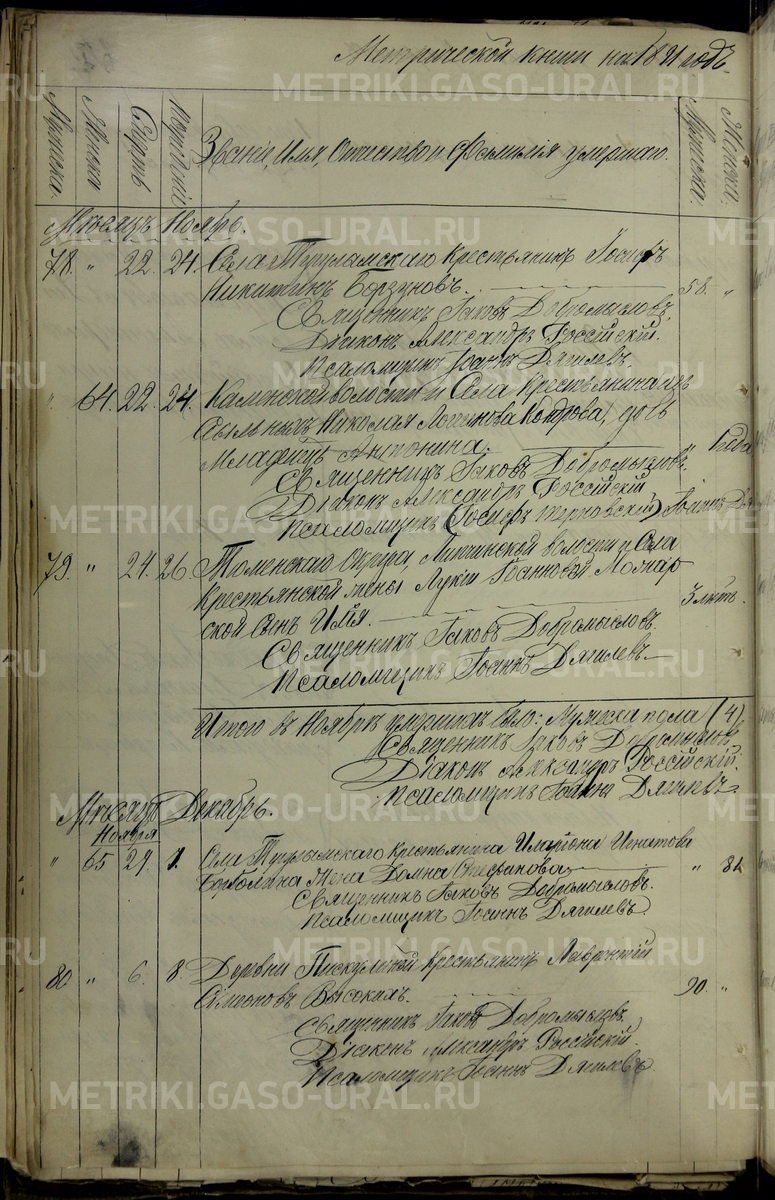 Метрической книги на 1891 годъ.
Мужска.
Женска
Смерть
Звание, Имя, Отчество и Фамилія умершаго.
Мужеска.
Женска.
Мѣсяцъ Ноябрь.
78. " 22. 24. Села Тугулымскаго крестьянинъ Іосифъ
Никитинъ Борзуновъ. 58. "
Священникъ Іаковъ Добромысловъ
Діаконъ Александръ Россійскій.
Псаломщикъ Іоаннъ Дягилевъ.
" 64. 22. 24. Каменской волости и Села крестьянина изъ
ссыльныхъ Николая Логинова дочь
Младенецъ Антонина. "
Священникъ Іаковъ Добромысловъ.
Діаконъ Александръ Россійскій
Псаломщикъ Іоаннъ
79. " 24. 26. Тюменскаго Округа, волости и Села
крестьянской жены Іоанновой
ской сынъ Илія. 3 лѣтъ.
Священникъ Іаковъ Добромысловъ
Псаломщикъ Іоаннъ Дягилевъ
Итого въ Ноябрѣ умершихъ было: Мужеска пола (4)
Священникъ Іаковъ Добромысловъ
Діаконъ Александръ Россійскій.
Псаломщикъ Іоаннъ Дягилевъ
Мѣсяцъ Декабрь.
Ноября
" 65 29. 1. Села Тугулымскаго крестьянина Иларіона Игнатова
Жена Домна Стефанова "
Священникъ Іаковъ Добромысловъ.
Псаломщикъ Іоаннъ Дягилевъ.
80 " 6. 8 Деревни крестьянинъ Лаврентій
Симеоновъ Высокихъ. 90. "
Священникъ Іаковъ Добромысловъ.
Діаконъ Александръ Россійскій.
Псаломщикъ Іоаннъ Дягилевъ.
METRIKI.GASO-URAL.RU